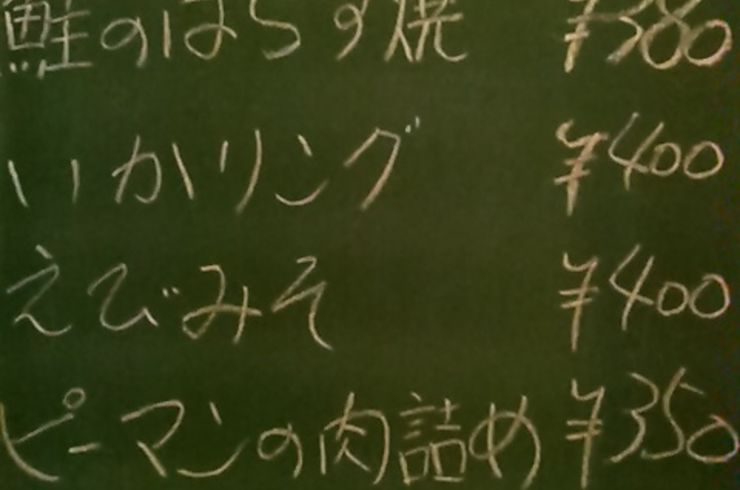 鮭のはらす焼 ¥380
いかリング ¥400
えびみそ ¥400
ピーマンの肉詰め ¥350